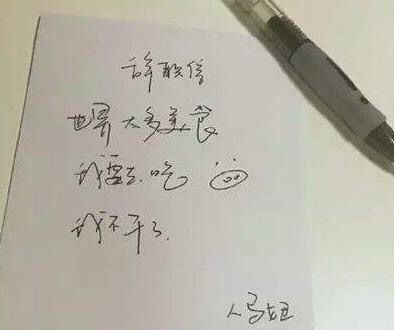 辞职信
世界太多美食
我要去吃
我不干了.